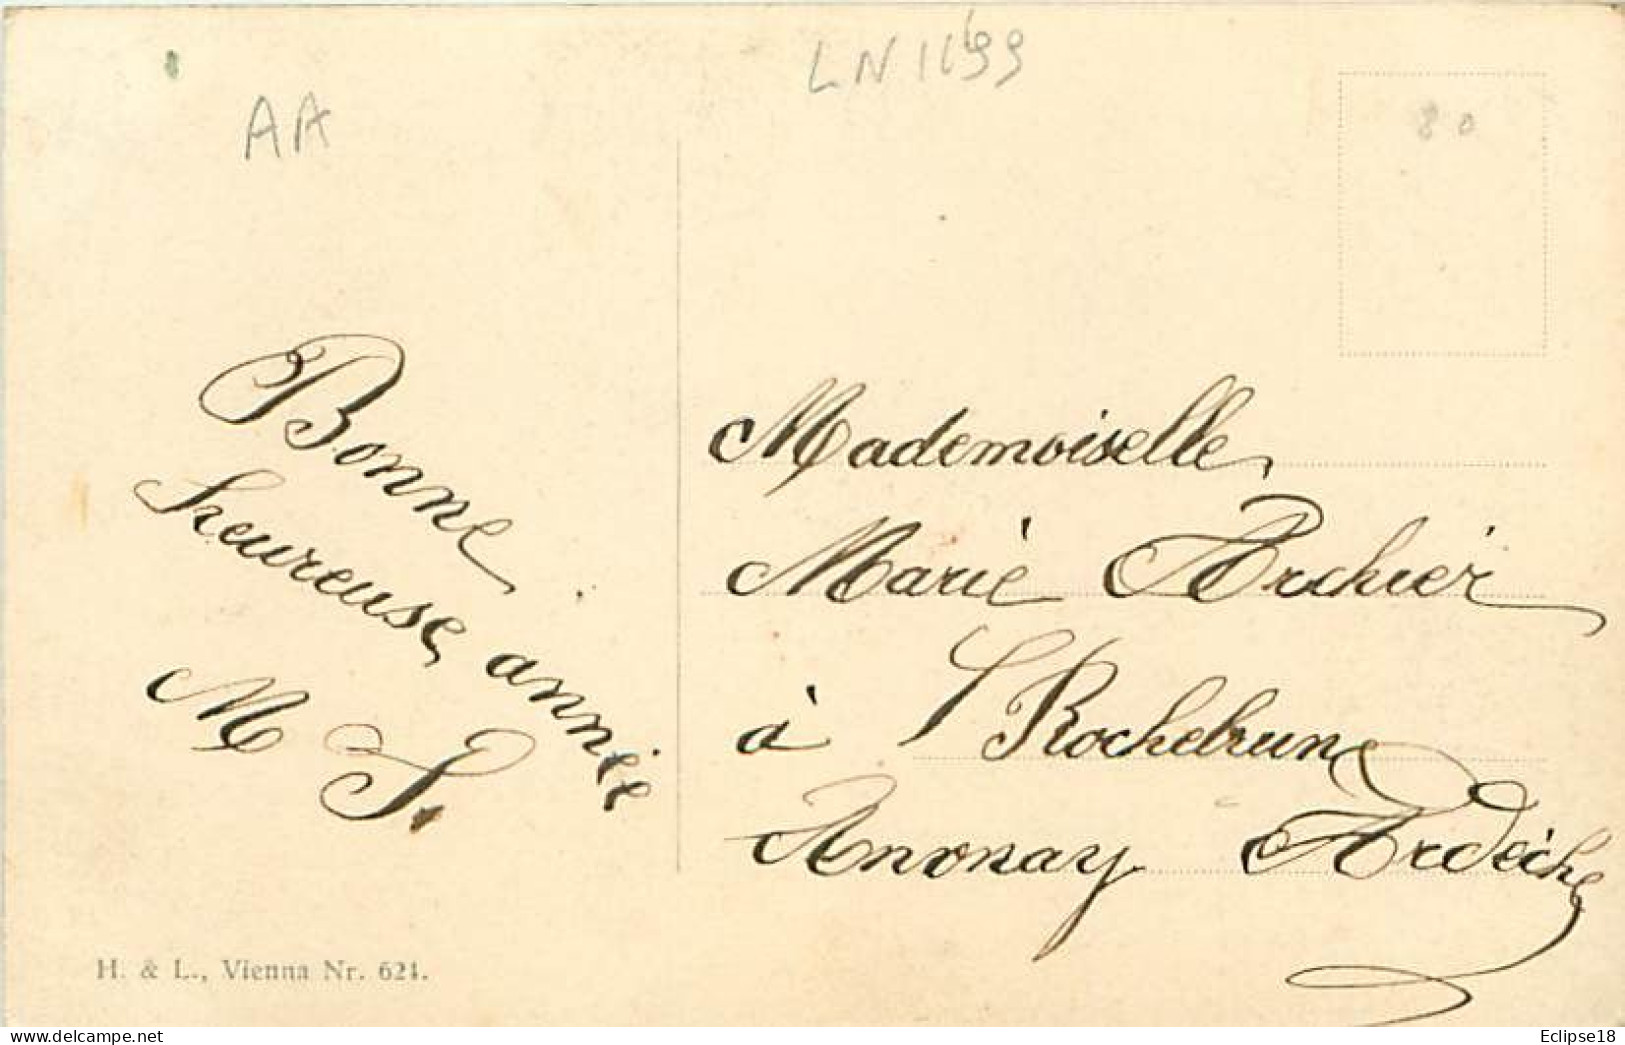 AA
LN 11699
80
Bonne
heureuse, année
M S.
Mademoiselle,
Marie Archier
à Rochebrune
Anonay Ardèche
H. & L., Vienna Nr. 621.
Eclipse18